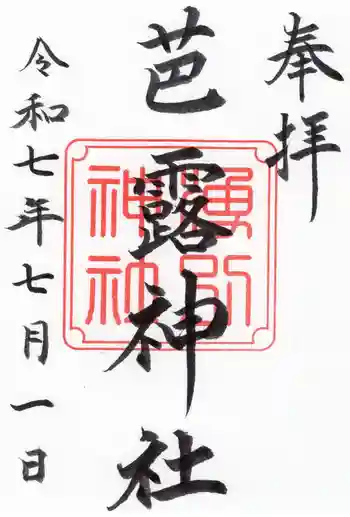 奉拝
芭露神社
令和七年七月一日
神社